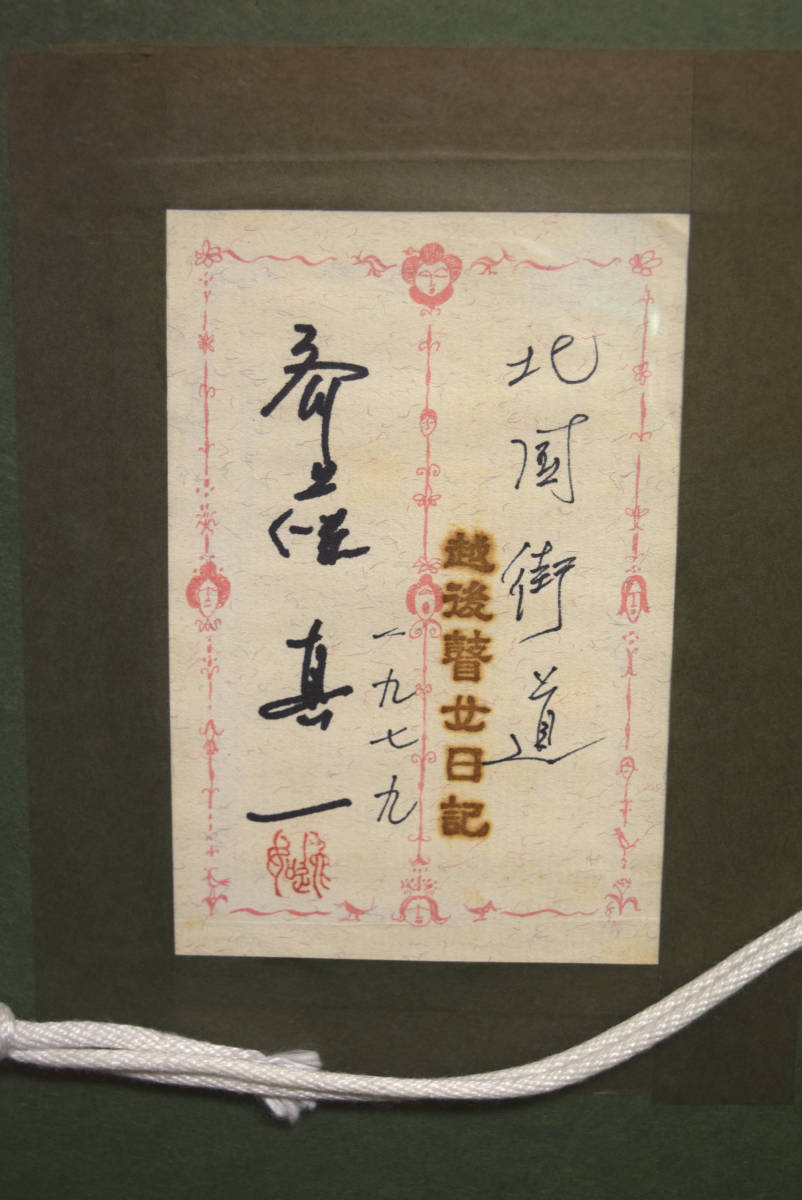 北国街道
越後瞽女日記
一九七九
斎藤真一